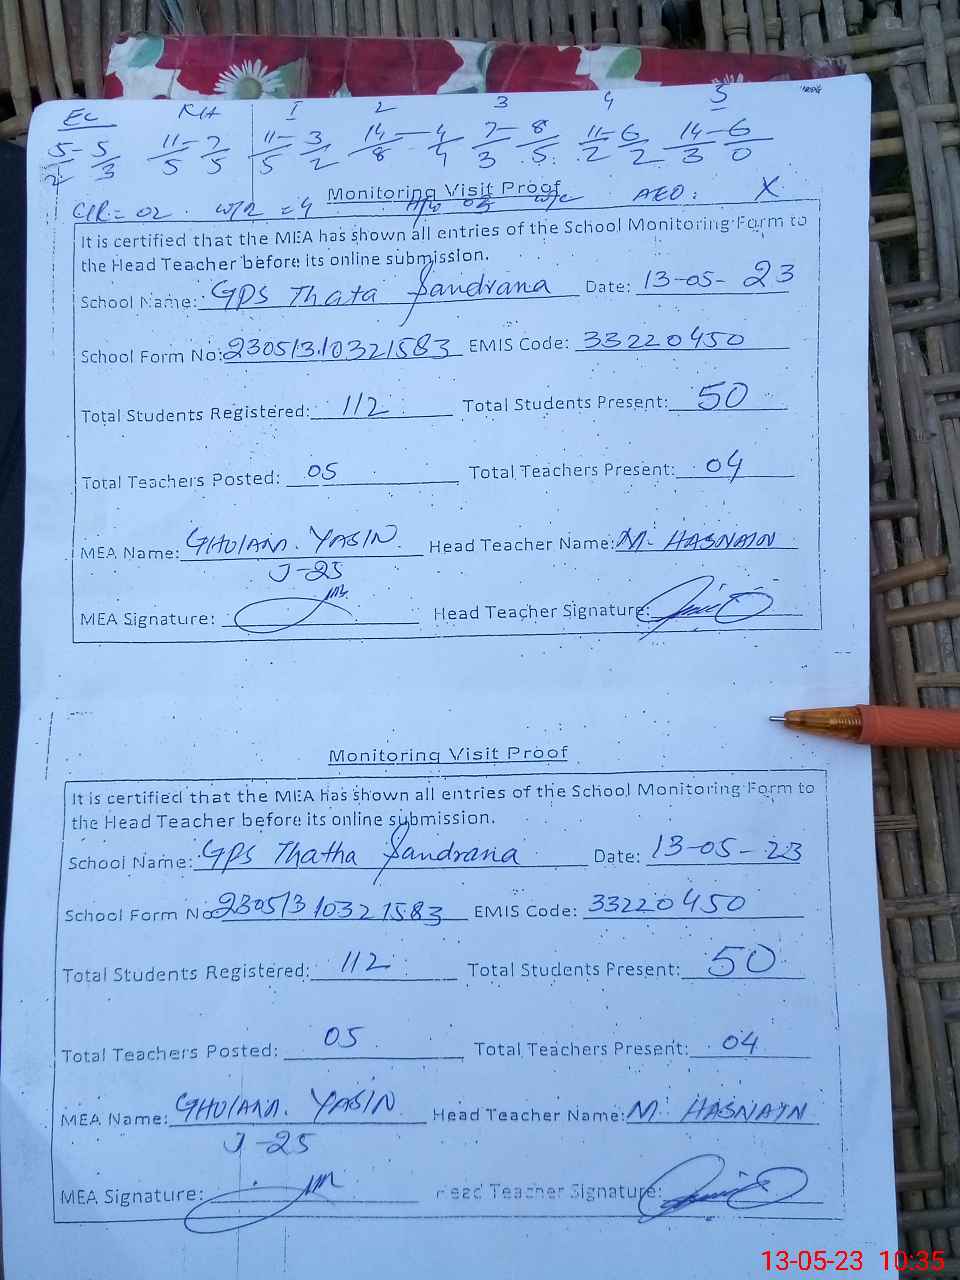 EC KH I 2 3 4 5
5 - 5 11 - 7 11 - 3 14 - 4 7 - 8 11 - 6 14 - 6
2 3 5 5 5 2 8 4 3 5 2 2 3 0
Monitoring Visit Proof
C/R = 02 W/R = 4 AEO: X
It is certified that the MEA has shown all entries of the School Monitoring Form to
the Head Teacher before its online submission.
School Name: GPS Thata Jandrana Date: 13-05-23
School Form No: 23051310321583 EMIS Code: 33220450
Total Students Registered: 112 Total Students Present: 50
Total Teachers Posted: 05 Total Teachers Present: 04
MEA Name: GHULAM. YASIN Head Teacher Name: M. HASNAIN
J-25
MEA Signature: Head Teacher Signature:
Monitoring Visit Proof
It is certified that the MEA has shown all entries of the School Monitoring Form to
the Head Teacher before its online submission.
School Name: GPS Thatha Jandrana Date: 13-05-23
School Form No: 23051310321583 EMIS Code: 33220450
Total Students Registered: 112 Total Students Present: 50
Total Teachers Posted: 05 Total Teachers Present: 04
MEA Name: GHULAM. YASIN Head Teacher Name: M. HASNAIN
J-25
MEA Signature: Head Teacher Signature:
13-05-23 10:35